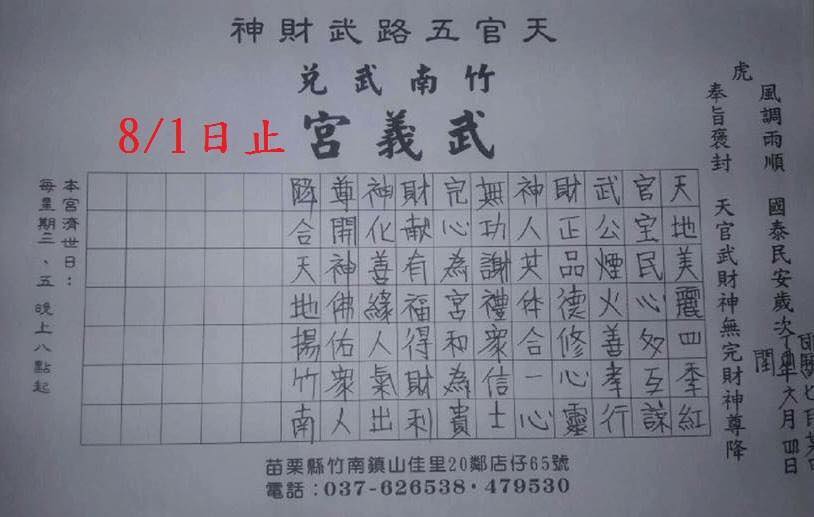 天官五路武財神
竹南武兌
武義宮
8/1日止
風調雨順 國泰民安歲次丁酉年六月四日
閏
虎
奉旨褒封 天官武財神無完財神尊降
天地美麗四季紅
官宝民心互諒
武公煙火善孝行
財正品德修心靈
神人共体合一心
無功謝禮眾信士
完心為宮和為貴
財献有福得財利
神化善緣人氣出
尊開神佛佑眾人
降合天地揚竹南
本宮濟世日：
每星期二、五 晚上八點起
苗栗縣竹南鎮山佳里20鄰店仔65號
電話：037-626538·479530